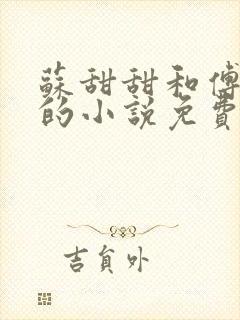 蘇甜甜和傅
的小說免費
吉負外